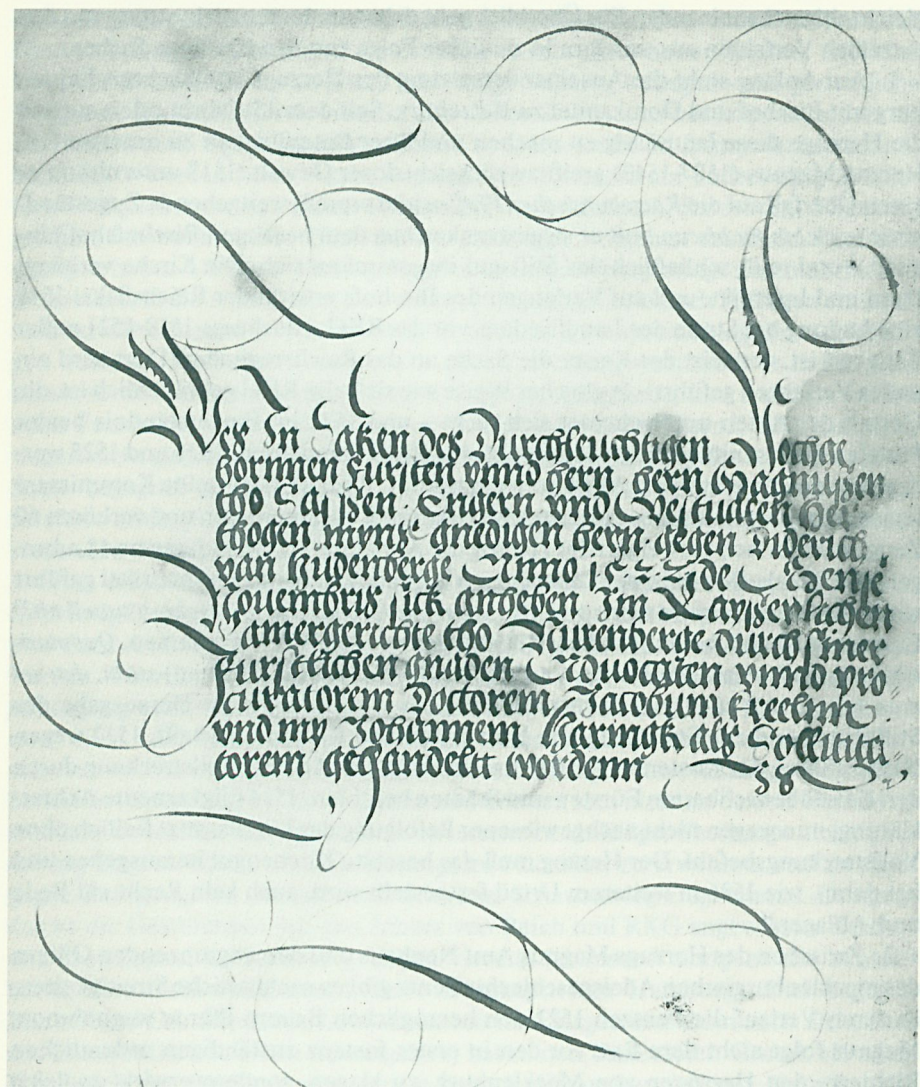 Wes In Saken des Durchleuchtigen Hochge
bornnen Fursten vnnd hern hern Magnußen
tho Saßen Engern vnd Vestualen Her
thogen myns gnedigen hern gegen Diderich
van Hudenberge Anno de
Nouembris sick anheben Im Kayßerlichen
Camergerichte tho Nurenberge durch siner
Furstlichen gnaden Aduocaten vnnd pro
curatorem Doctorem Jacobum
vnd my Johannem Haringk als Sollicita
torem gehandeltt wordenn